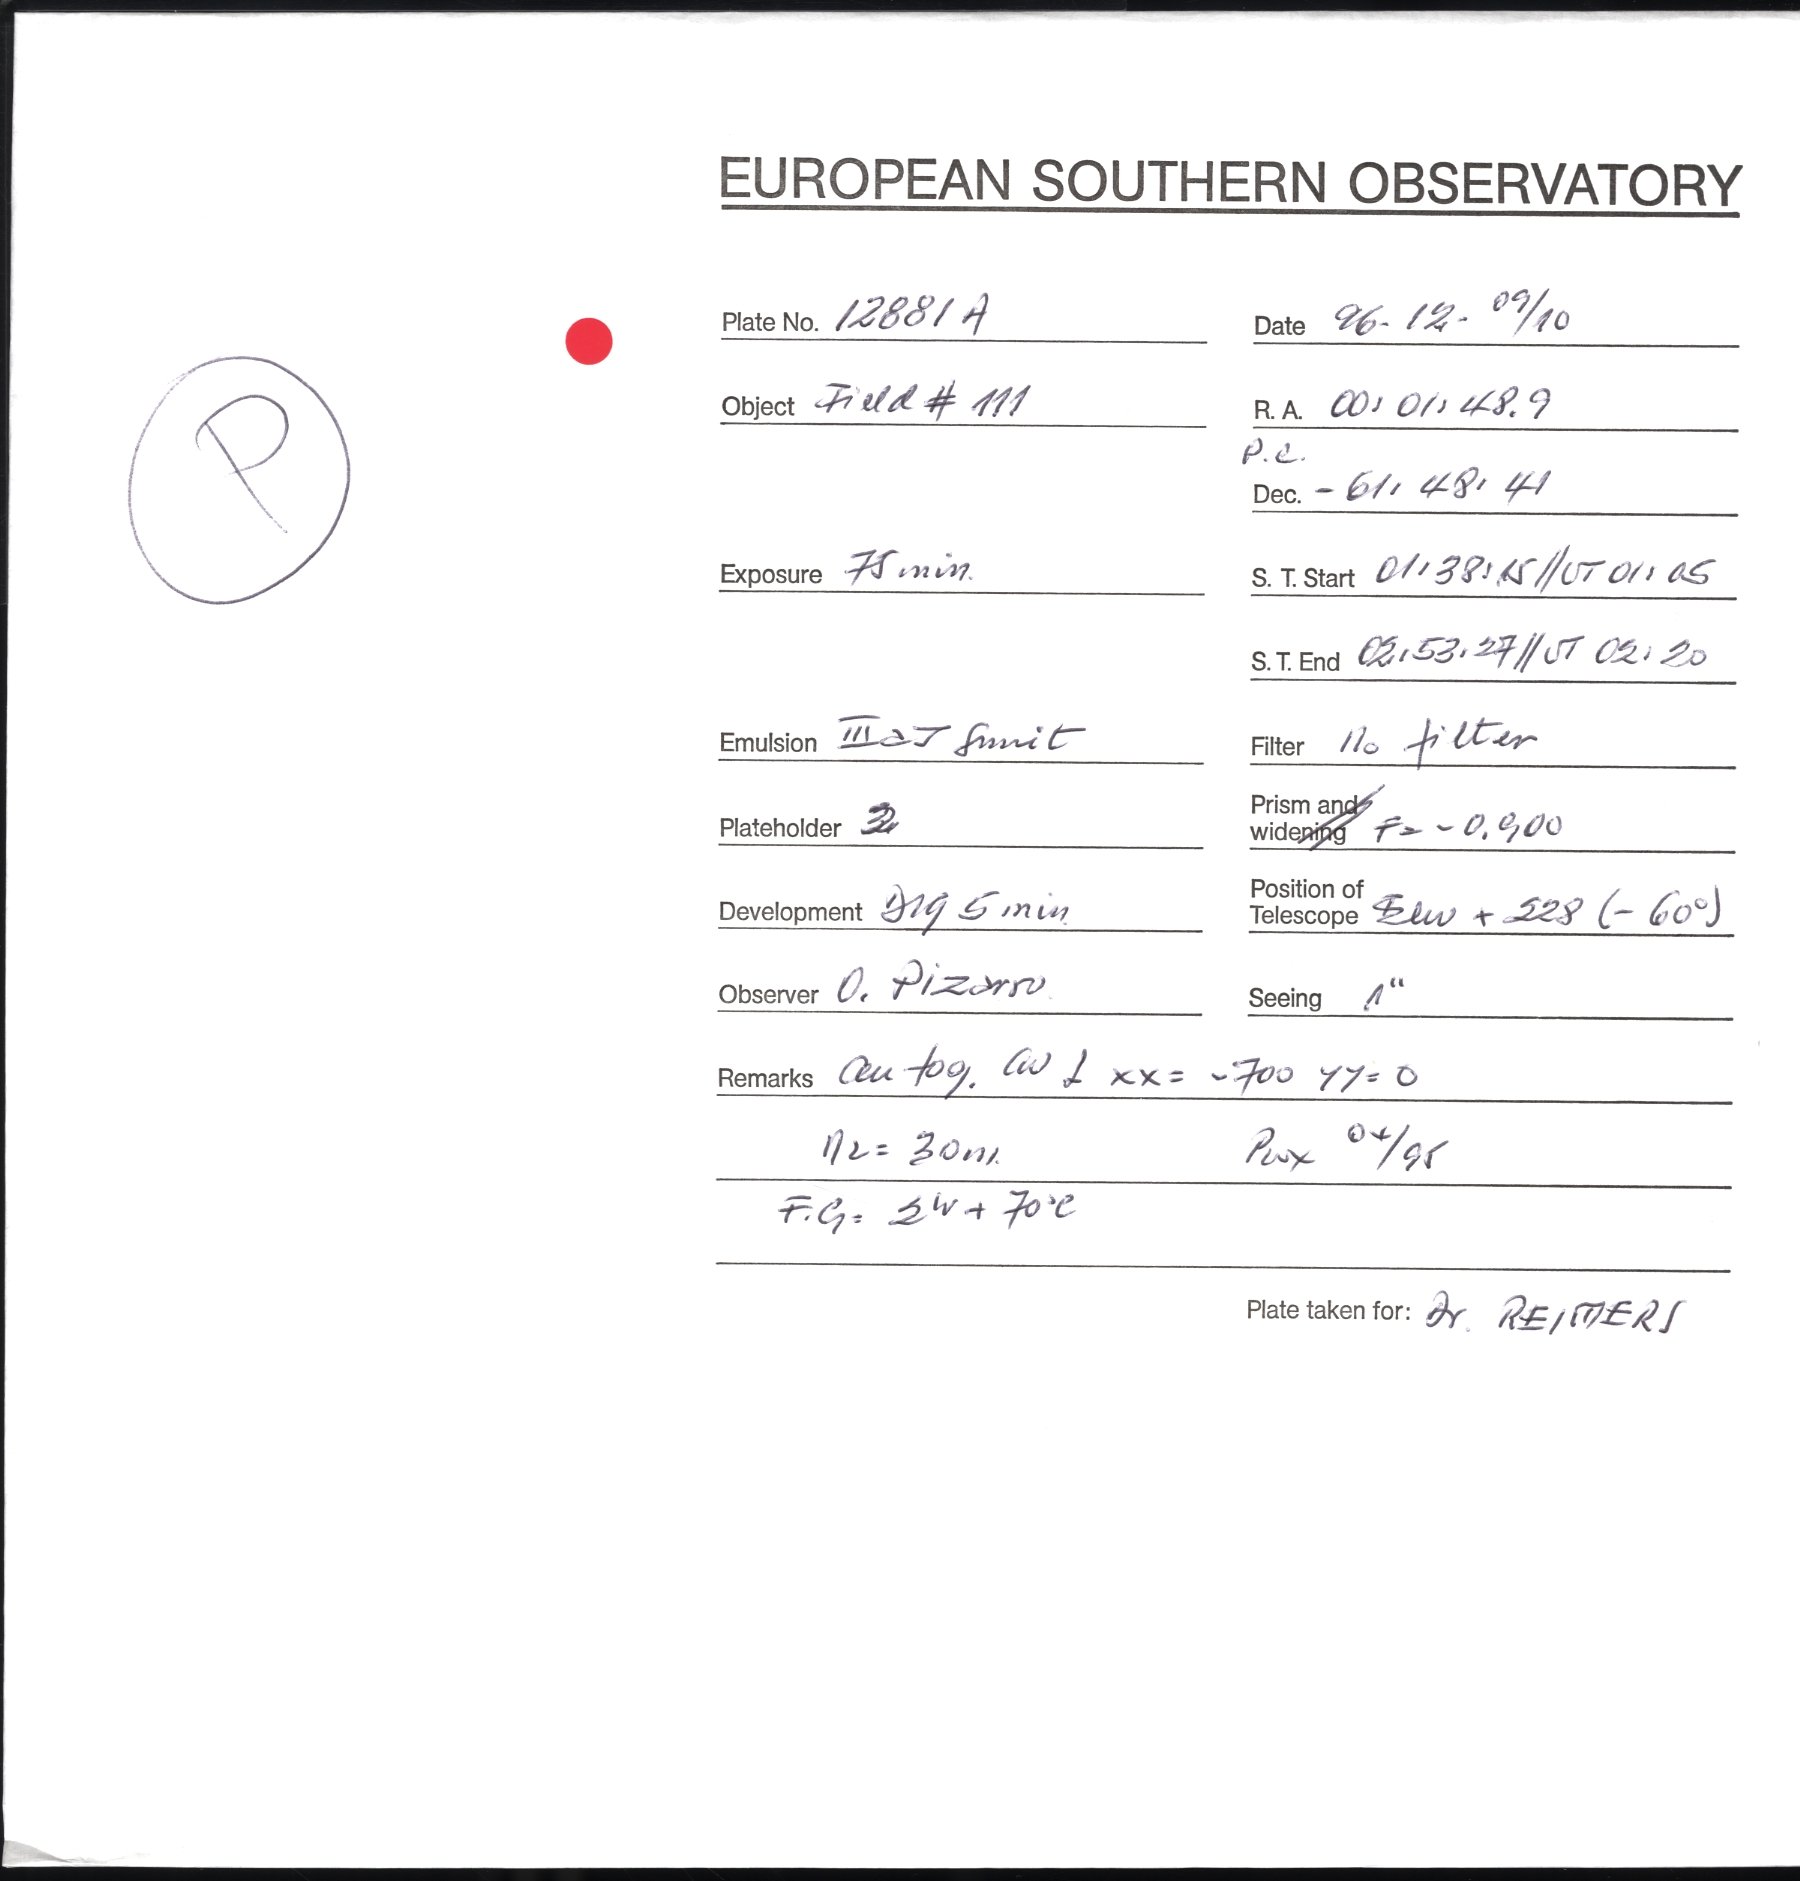 EUROPEAN SOUTHERN OBSERVATORY
Plate No. 12881 A Date 96-12-09/10
Object Field # 111 R. A. 00: 01: 48.9
P
P.c.
Dec. -61: 48: 41
Exposure 75 min. S. T. Start 01:38:15//UT 01: 05
S. T. End 02:53:27//UT 02: 20
Emulsion IIIaJ Filter No filter
Plateholder Prism and widening F= -0.900
Development D19 5 min. Position of Telescope + 228 (-60°)
Observer O. Pizarro Seeing 1"
Remarks xx= -700 yy= 0
N2= 30m. 04/95
F.G= 2W + 70°C
Plate taken for: Dr. REIMERS